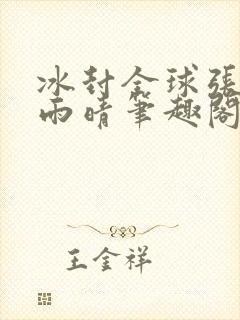 冰封全球張
雨晴筆趣閣
王金祥